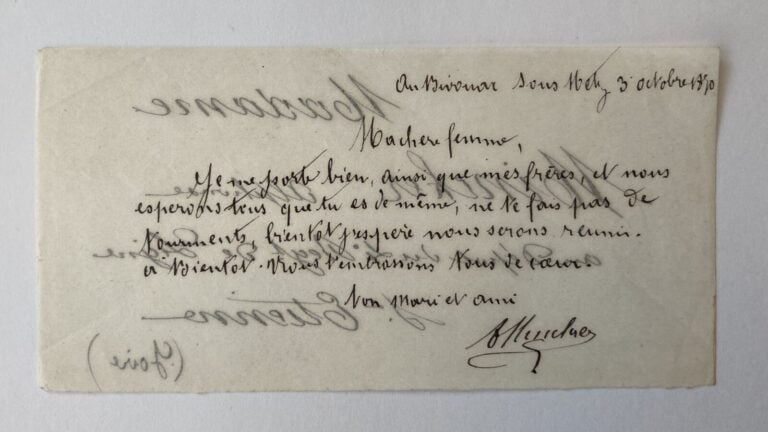 Au Bivouac sous Metz 3 octobre 1870
Ma chere femme,
Je me porte bien, ainsi que mes frères, et nous
esperons tous que tu es de même, ne te fais pas de
tourments, bientot j'espere nous serons reuni.
à Bientot. Nous t'embrassons tous de cœur.
Ton mari et ami
Madame
St Etienne
(Loire)